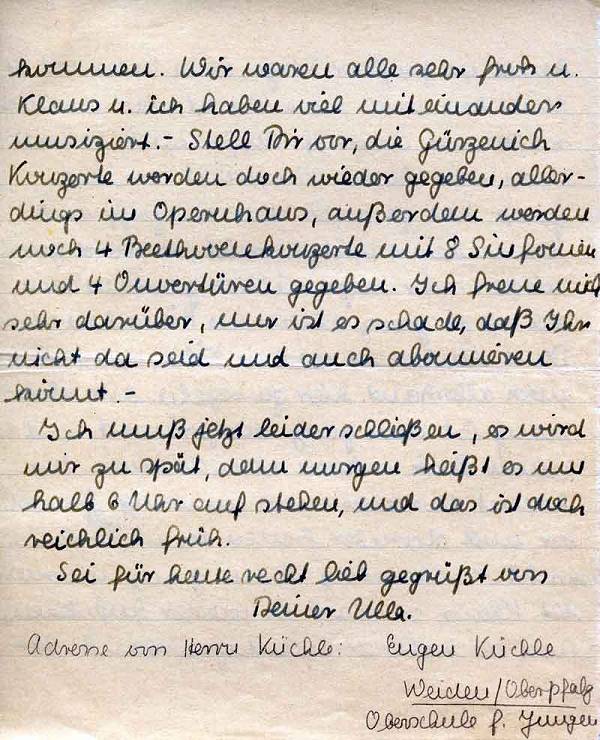 kommen. Wir waren alle sehr froh u.
Klaus u. ich haben viel miteinander
musiziert.- Stell Dir vor, die Gürzenich
Konzerte werden doch wieder gegeben, aller-
dings im Opernhaus, außerdem werden
noch 4 Beethovenkonzerte mit 8 Sinfonien
und 4 Ouvertüren gegeben. Ich freue mich
sehr darüber, nur ist es schade, daß Ihr
nicht da seid und auch abonnieren
könnt. -
Ich muß jetzt leider schließen, es wird
mir zu spät, denn morgen heißt es um
halb 6 Uhr auf stehen, und das ist doch
reichlich früh.
Sei für heute recht lieb gegrüßt von
Deiner Ulla.
Adresse von Herrn Küchle: Eugen Küchle
Weiden/Oberpfalz
Oberschule f. Jungen